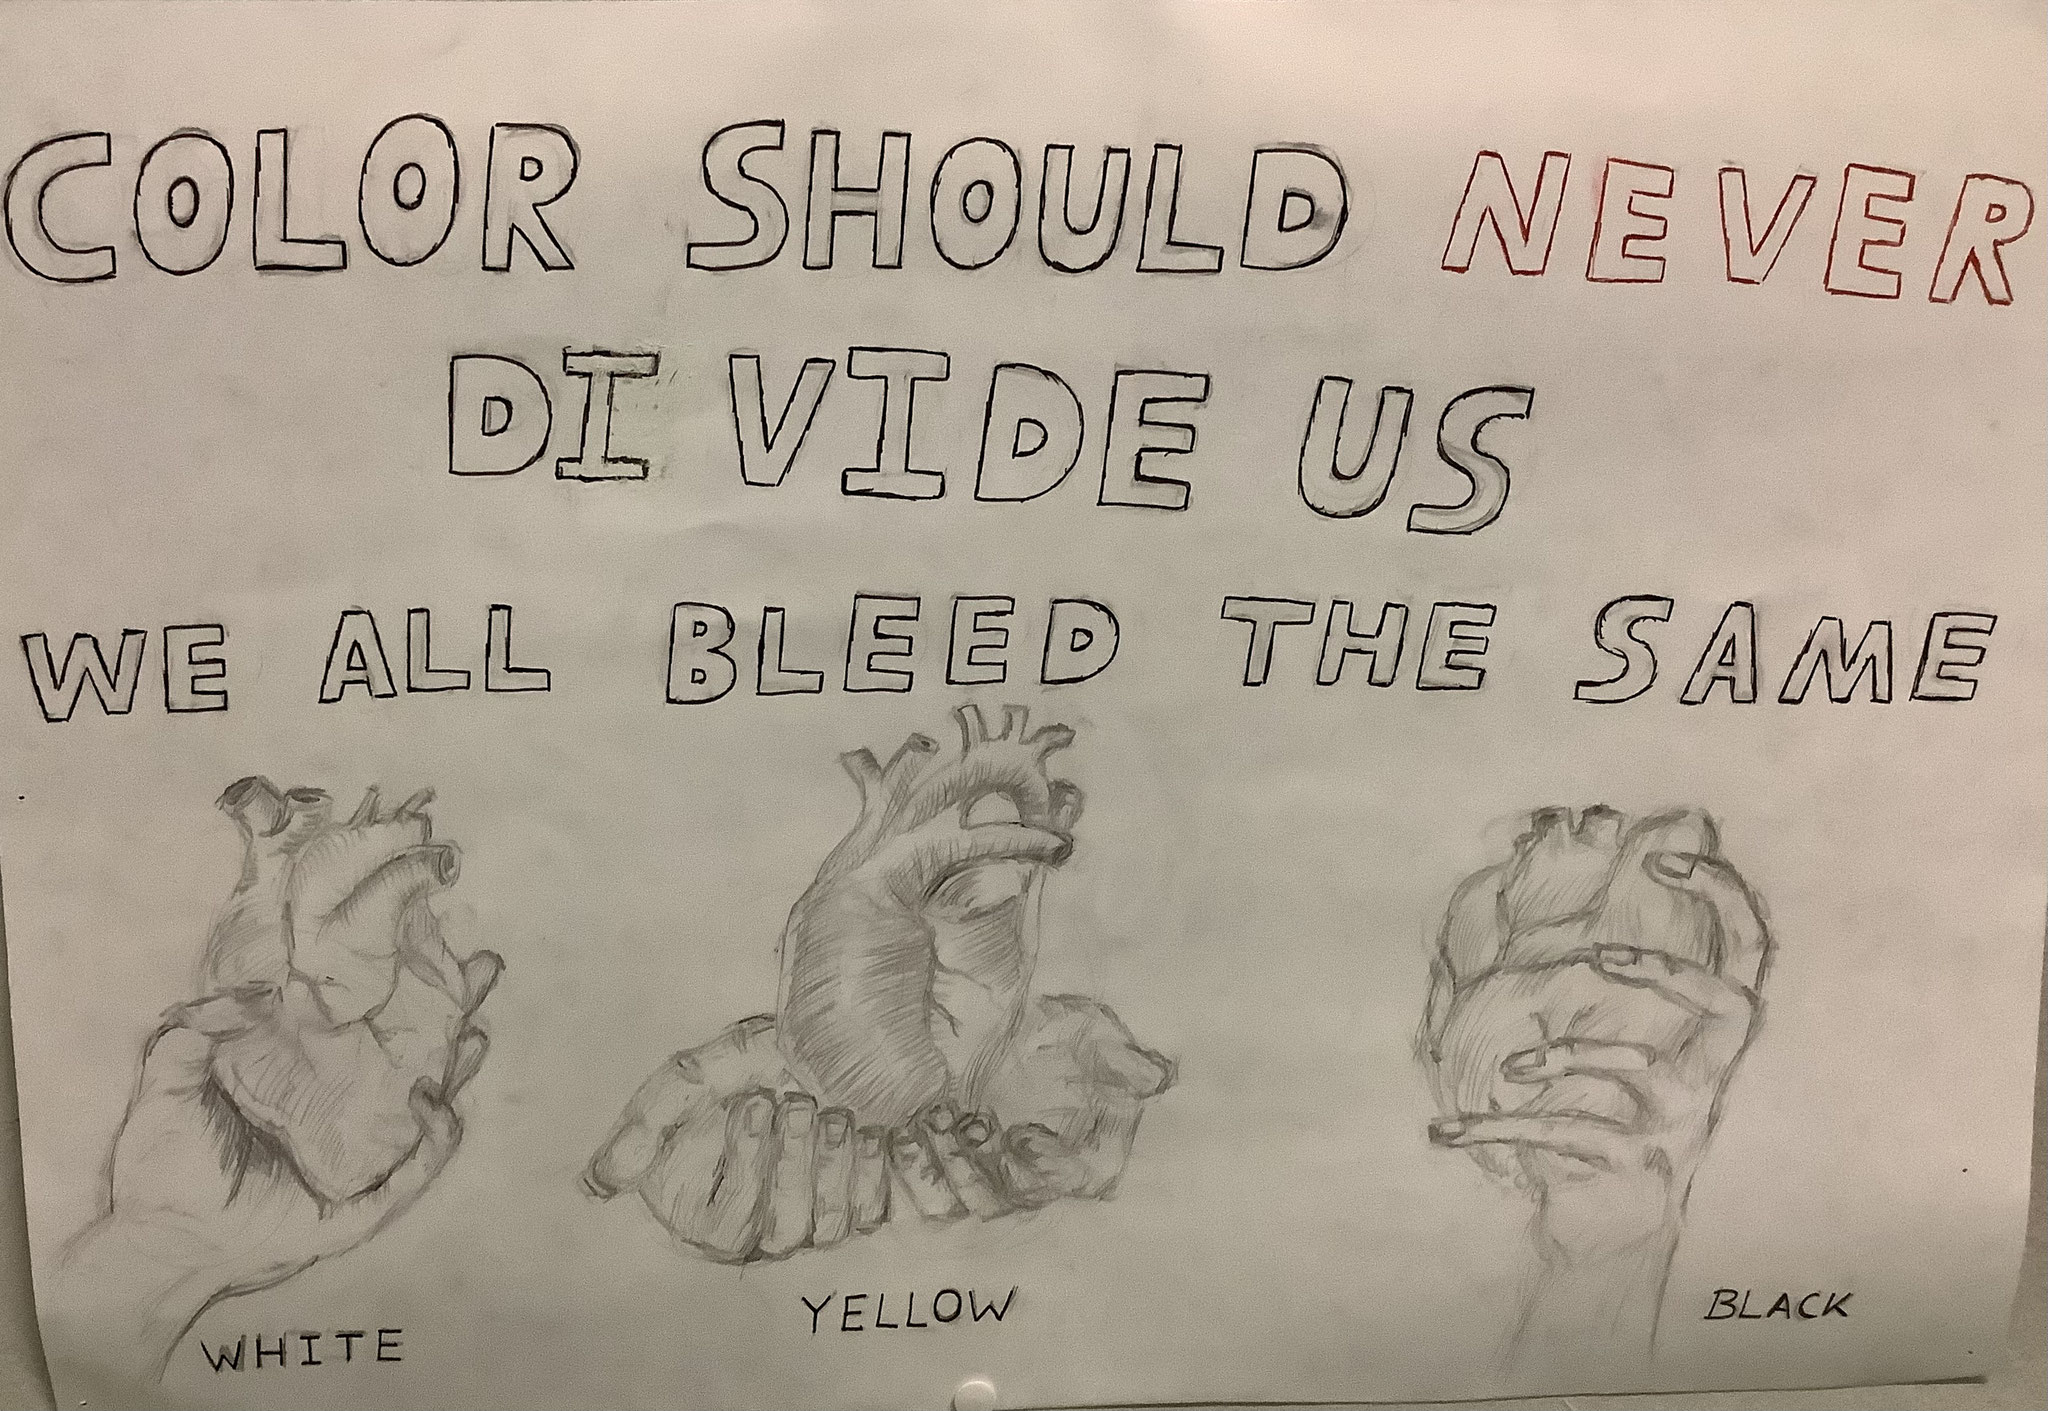 COLOR SHOULD NEVER
DIVIDE US
WE ALL BLEED THE SAME
WHITE
YELLOW
BLACK